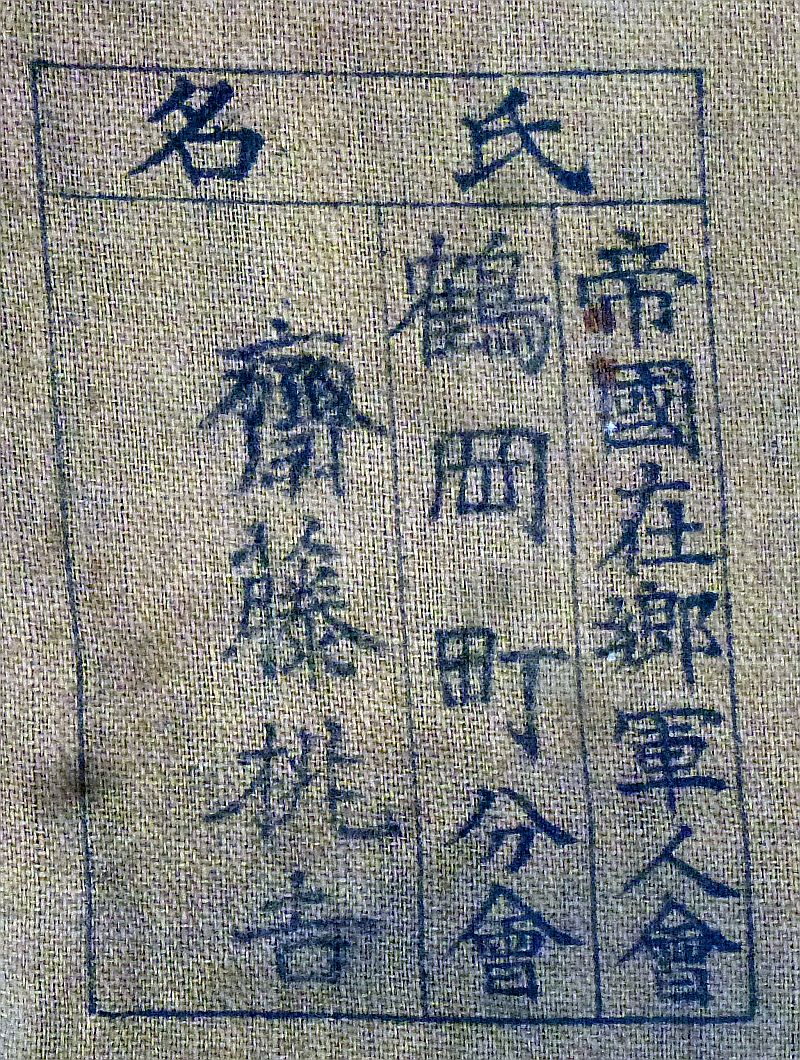 氏名
帝國在鄕軍人會
鶴岡町分會
齋藤桃吉